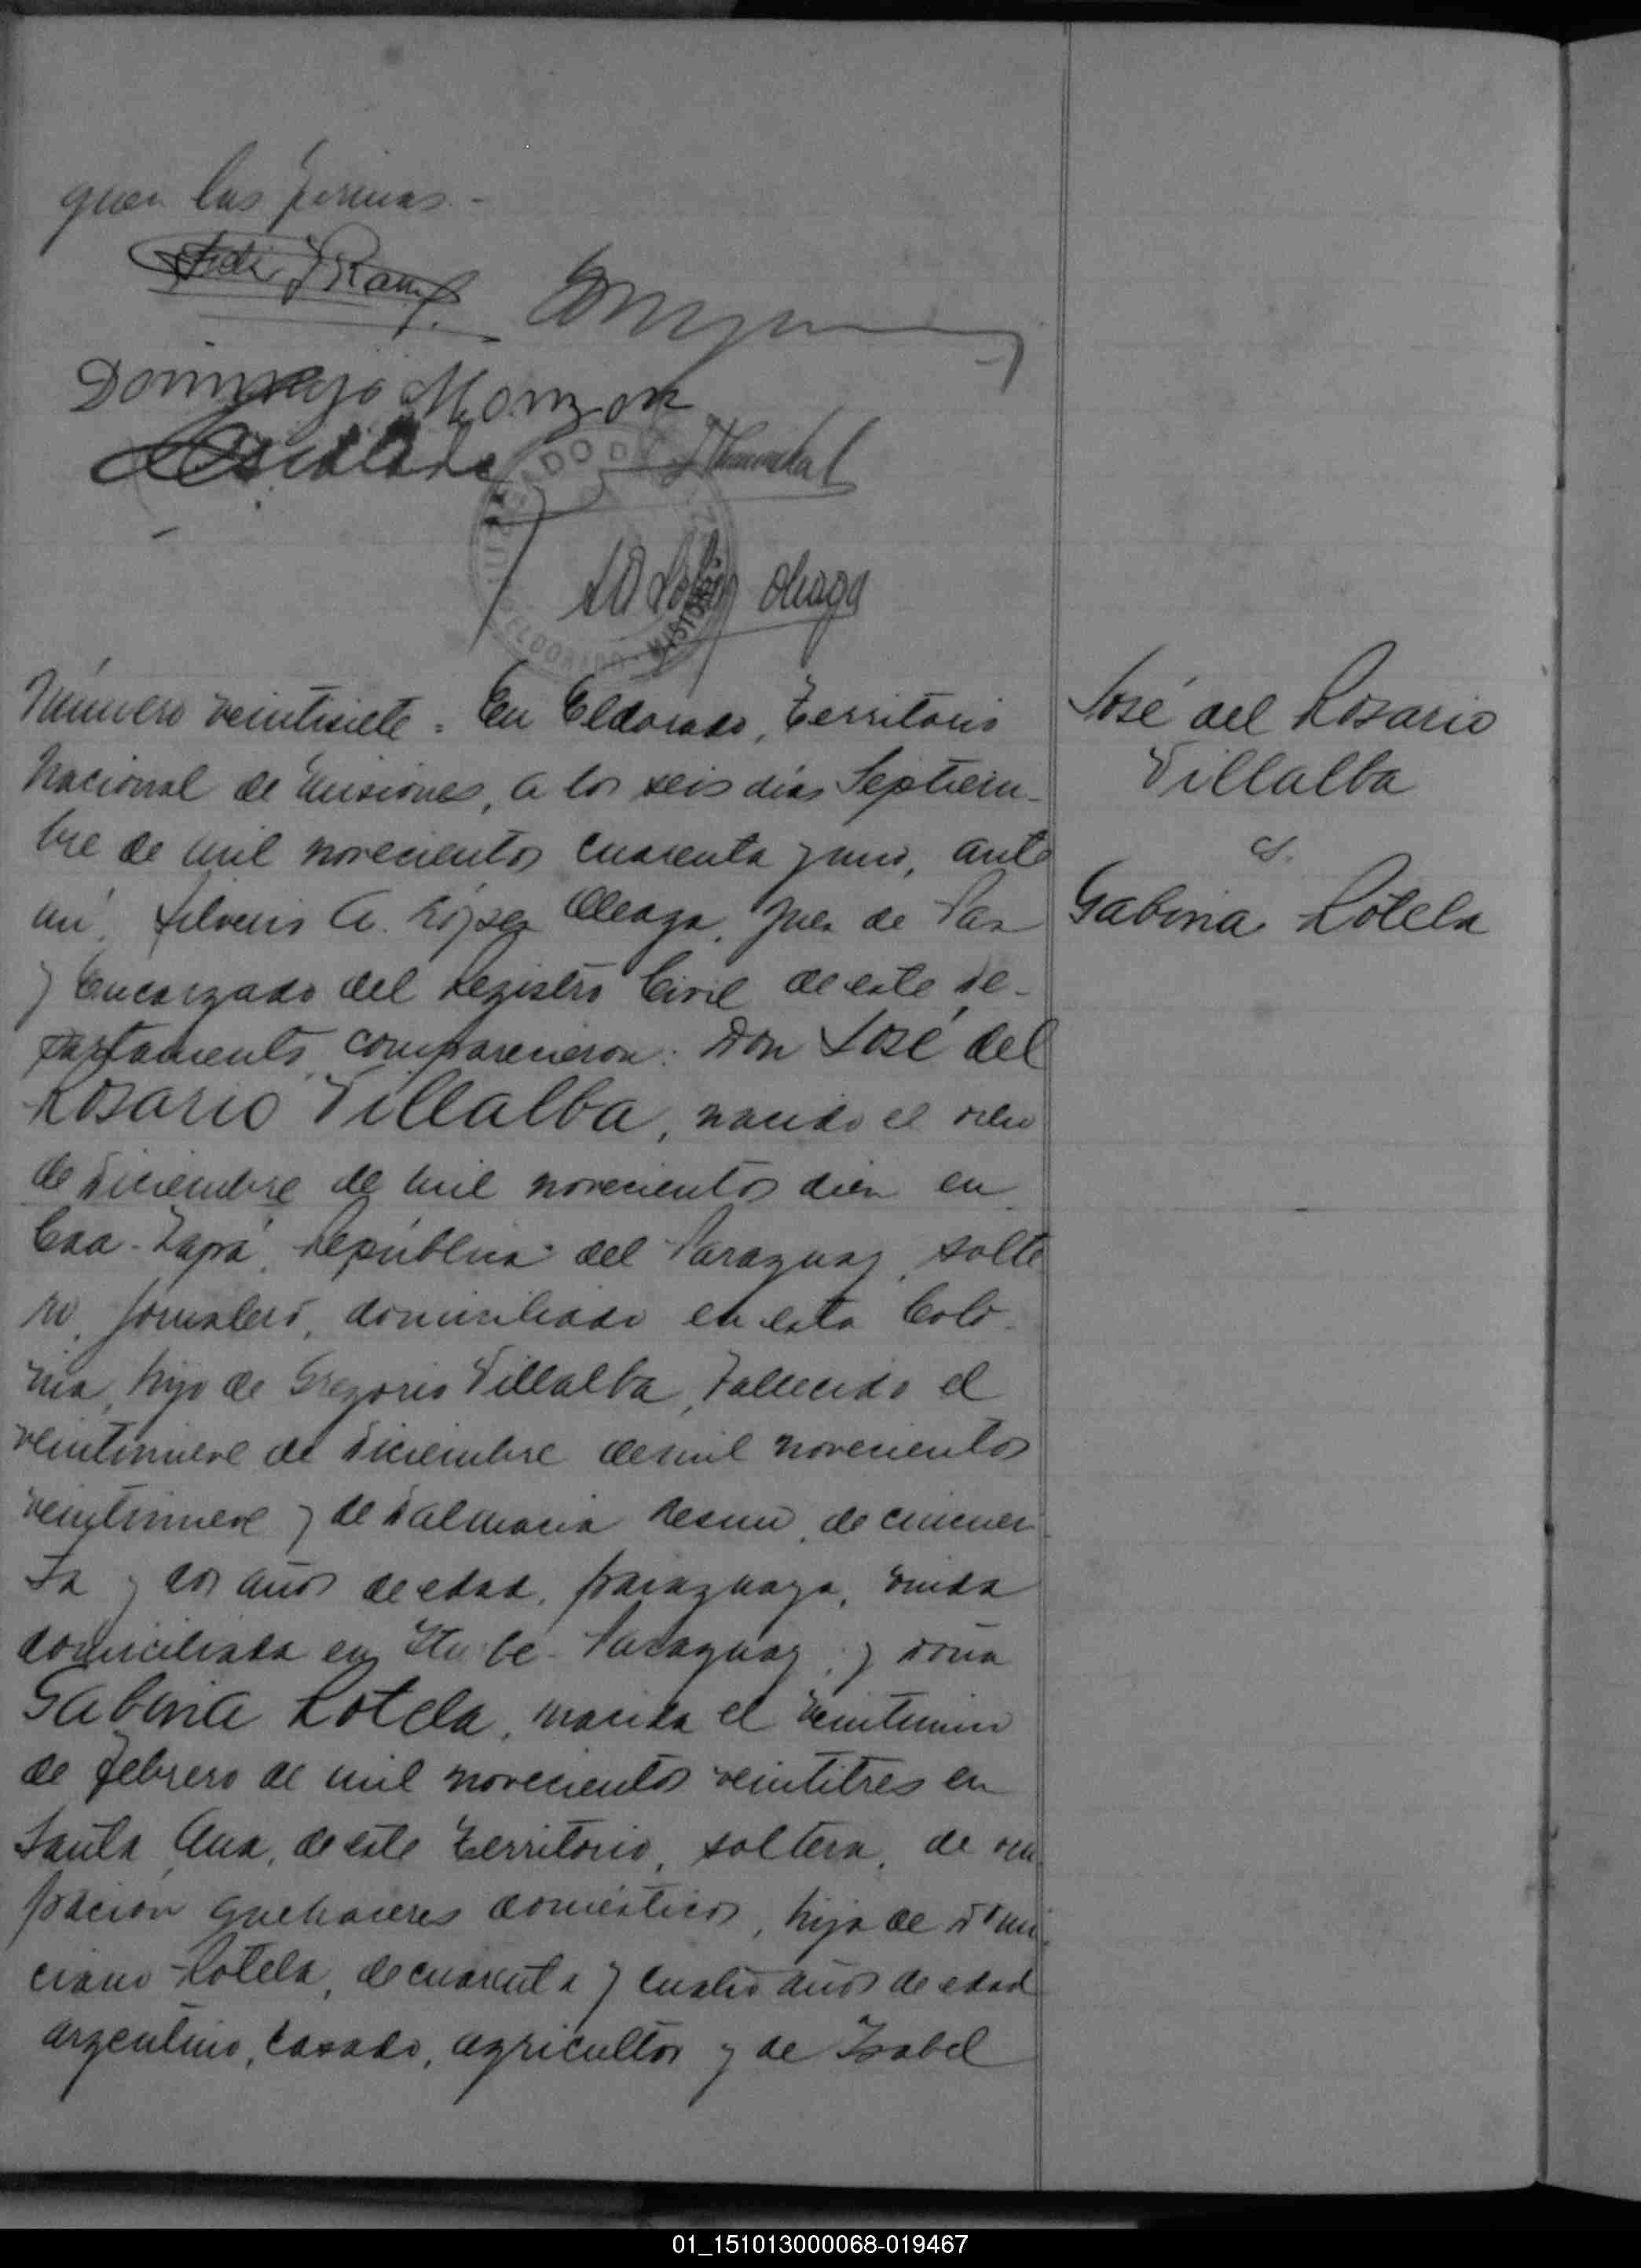 guen las firmas.-
Domingo Monzon
JUZGADO DE PAZ
ELDORADO - MISIONES
Número veintisiete = En Eldorado, Territorio
Nacional de Misiones, a los seis dias Septiem-
bre de mil novecientos cuarenta y uno, ante
mi, Silverio A. López Aleaga, Juez de Paz
y Encargado del Registro Civil de este De-
partamento, comparecieron: Don José del
Rosario Villalba, nacido el ocho
de Diciembre de mil novecientos diez en
Caa-Zapá, República del Paraguay, solte
ro, jornalero, domiciliado en esta Colo-
nia, hijo de Gregorio Villalba, fallecido el
veintinueve de Diciembre de mil novecientos
veintinueve y de Dalmacia, de cincuen
ta y dos años de edad, paraguaya, viuda
domiciliada en Paraguay, y Doña
Gabina Lotela, nacida el
de febrero de mil novecientos veintitres en
Santa Ana, de este Territorio, soltera, de ocu
pación quehaceres domésticos, hija de Domi
ciano Lotela, de cuarenta y cuatro años de edad
argentino, casado, agricultor y de Isabel
José del Rosario
Villalba
c.
Gabina Lotela
01_151013000068-019467